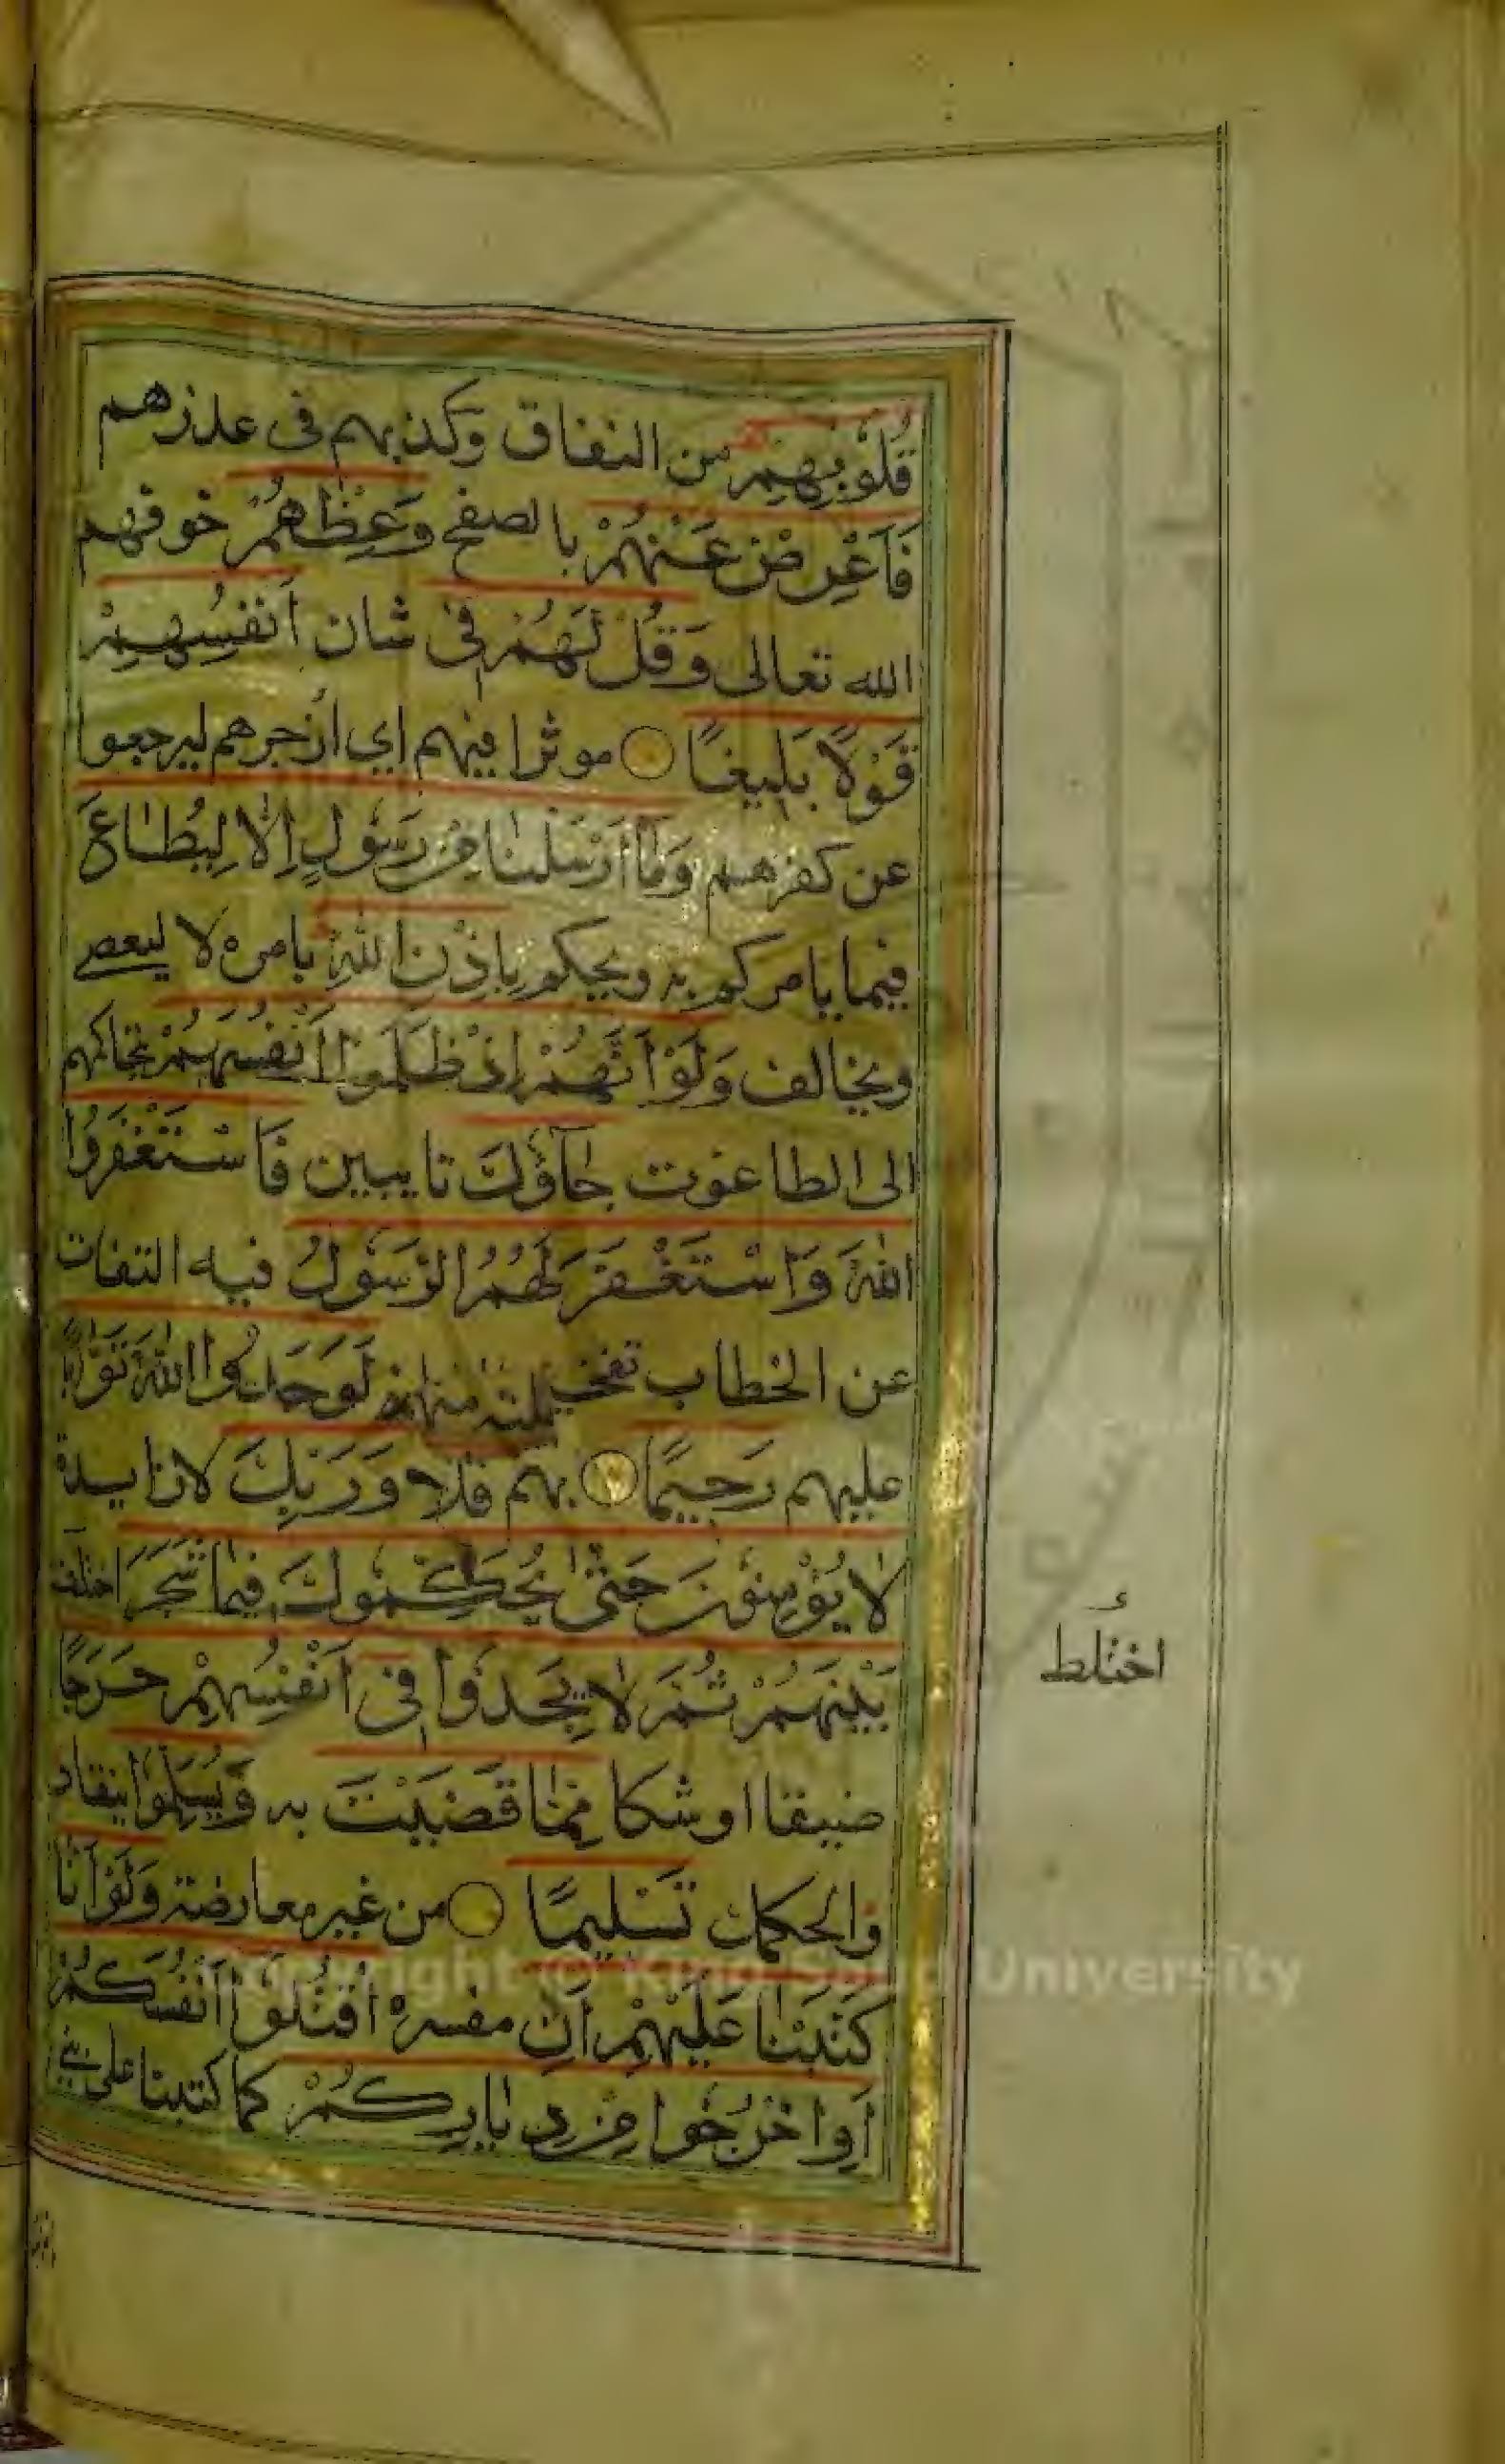 قُلُوبِهِمْ من النفاق وكذبهم في عذرهم
فَأَعْرِضْ عَنْهُمْ بالصفح وَعِظْهُمْ خوفهم
الله تعالى وَقُلْ لَهُمْ فِي شان أَنْفُسِهِمْ
قَوْلًا بَلِيغًا موثرا فيهم اي ازجرهم ليرجعوا
عن كفرهم وَمَا أَرْسَلْنَا مِنْ رَسُولٍ إِلَّا لِيُطَاعَ
فيما يامركم به ويحكم بِإِذْنِ اللَّهِ بامره لا ليعصي
ويخالف وَلَوْ أَنَّهُمْ إِذْ ظَلَمُوا أَنْفُسَهُمْ بتحاكمهم
الى الطاغوت جَآؤُكَ تايبين فَاسْتَغْفَرُوا
اللَّهَ وَاسْتَغْفَرَ لَهُمُ الرَّسُولُ فيه التفات
عن الخطاب تفخيما لشانه لَوَجَدُوا اللَّهَ تَوَّابًا
عليهم رَحِيمًا بهم فَلَا وَرَبِّكَ لا زايدة
لَا يُؤْمِنُونَ حَتَّى يُحَكِّمُوكَ فِيمَا شَجَرَ اختلف
بَيْنَهُمْ ثُمَّ لَا يَجِدُوا فِي أَنْفُسِهِمْ حَرَجًا
ضيقا او شكا مِمَّا قَضَيْتَ به وَيُسَلِّمُوا ينقاد
والحكمك تَسْلِيمًا من غير معارضة وَلَوْ أَنَّا
كَتَبْنَا عَلَيْهِمْ أَنِ مفسره اقْتُلُوا أَنْفُسَكُمْ
أَوِ اخْرُجُوا مِنْ دِيَارِكُمْ كما كتبنا على بني
اختلط
Copyright © King Saud University